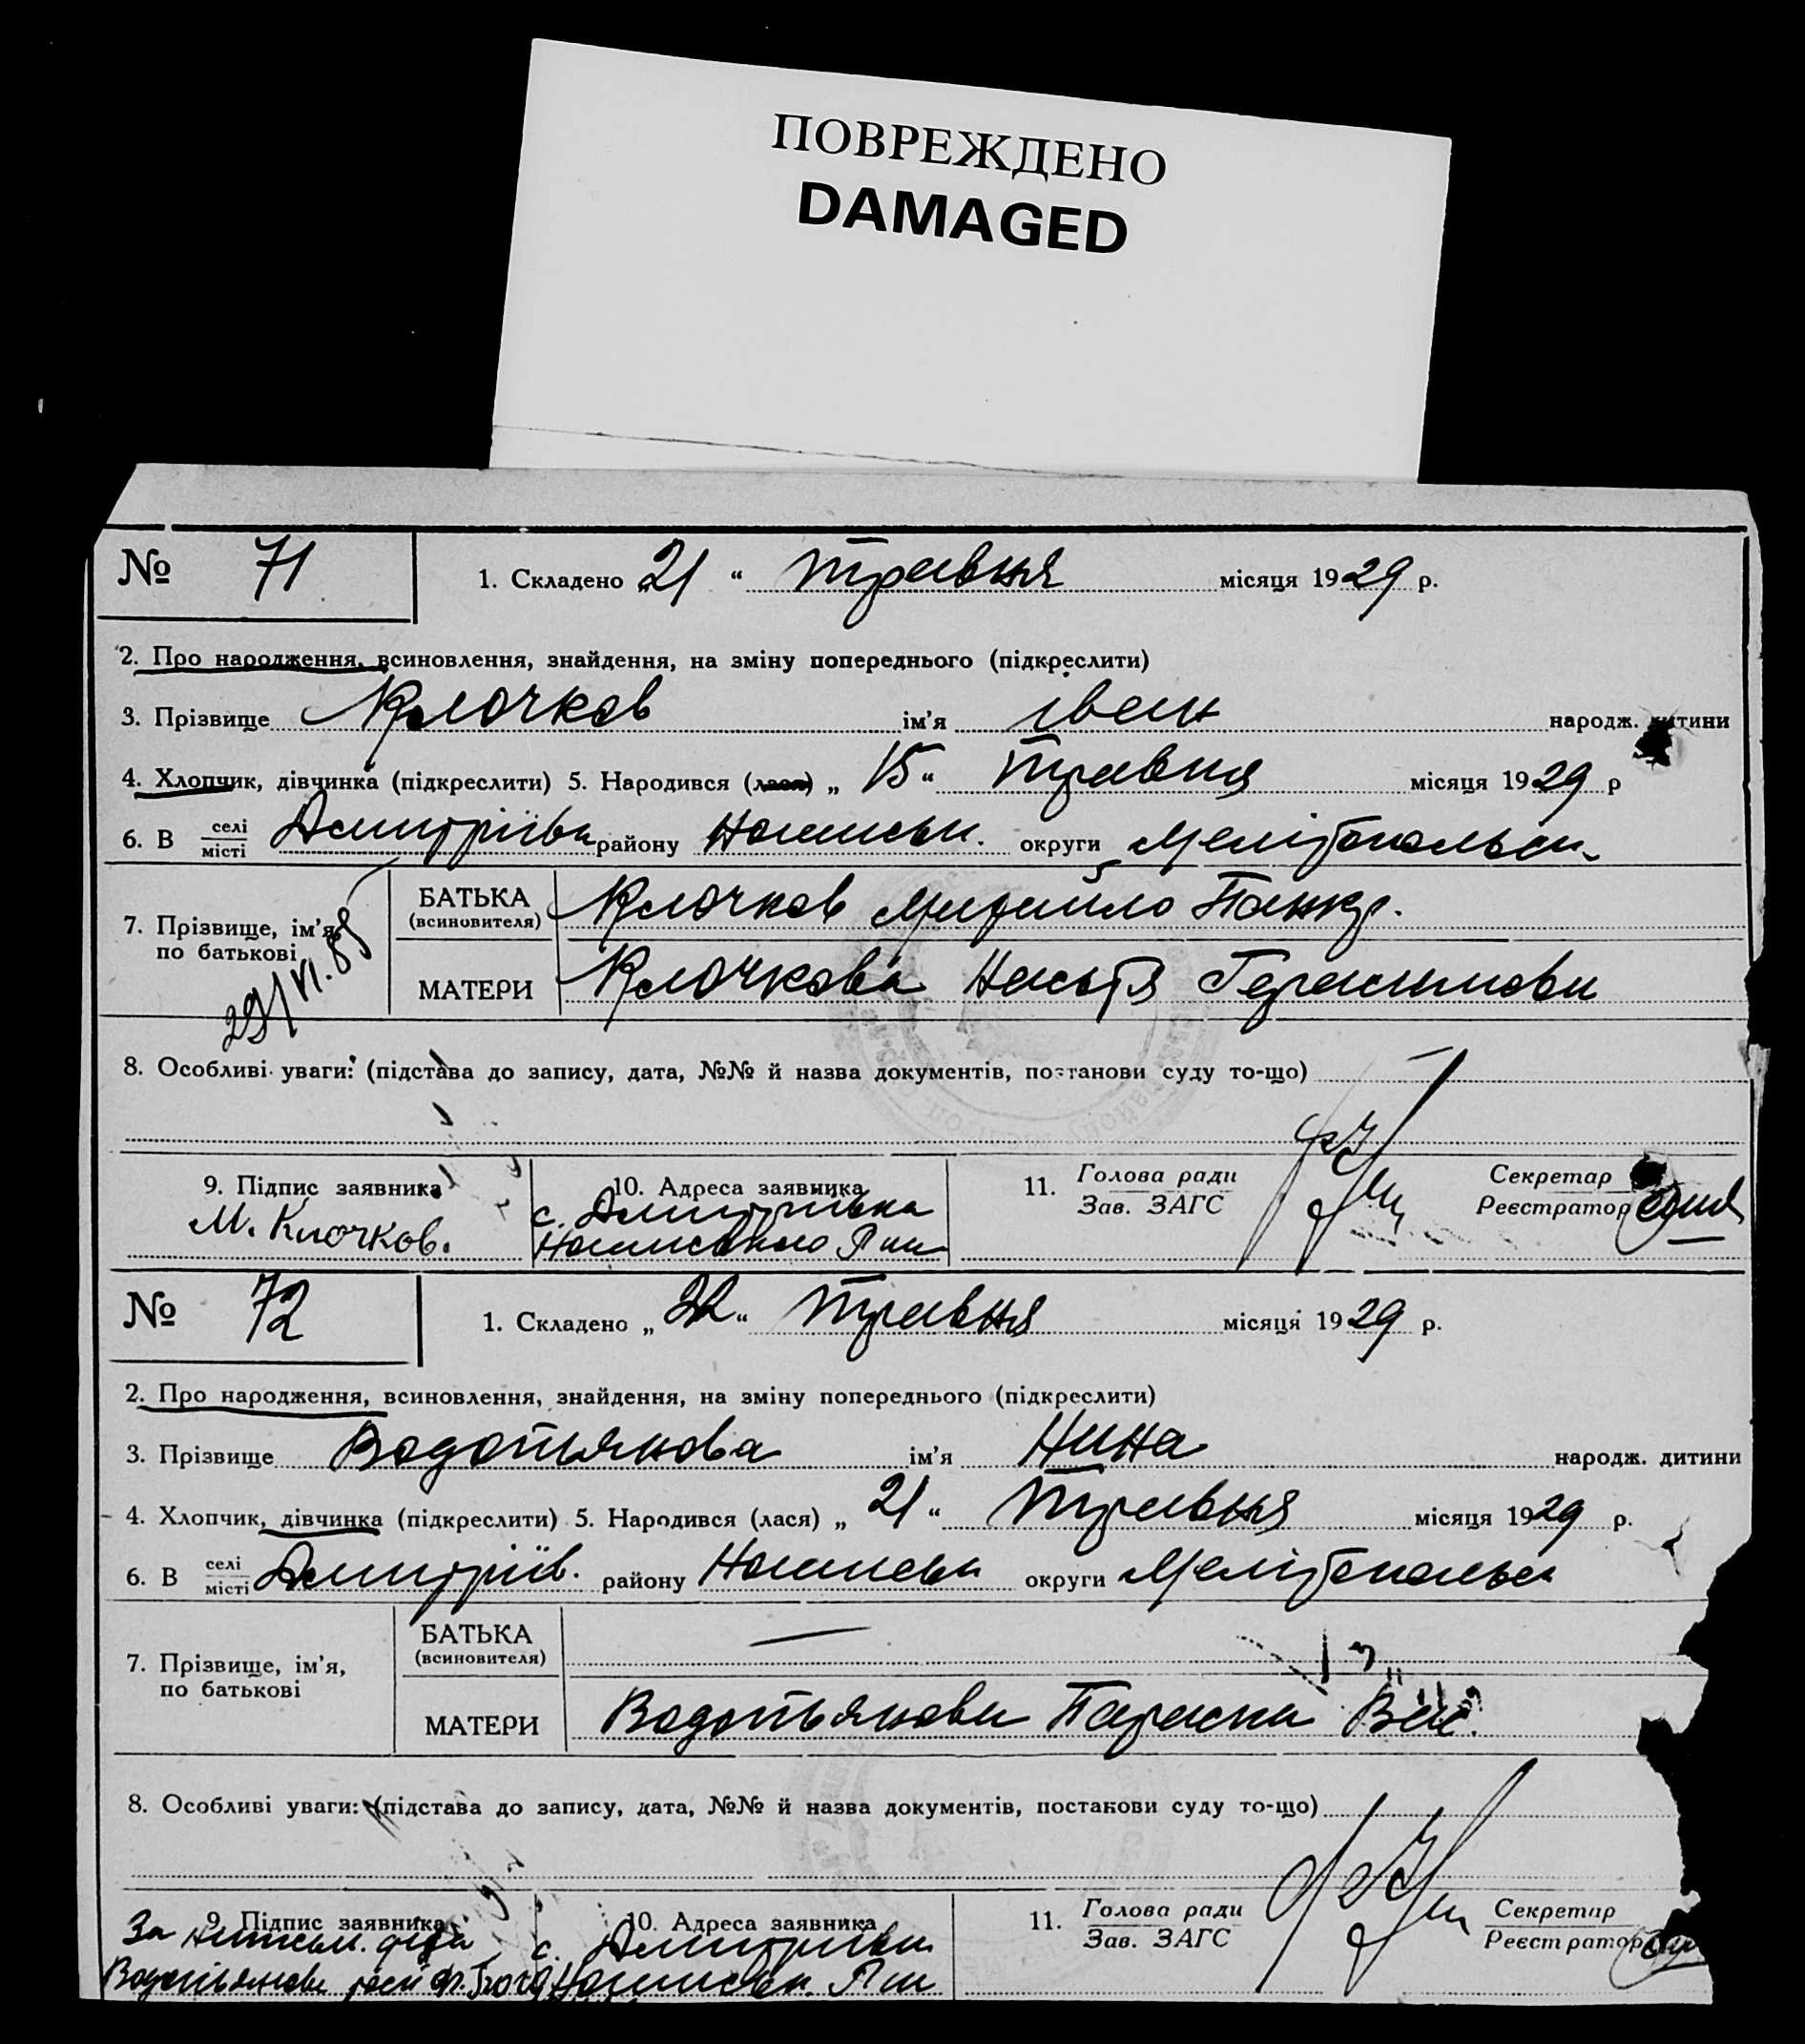 ПОВРЕЖДЕНО
DAMAGED
№ 71 1. Складено „21“ травня місяця 1929 р.
2. Про народження, всиновлення, знайдення, на зміну попереднього (підкреслити)
3. Прізвище Клочков ім’я Іван народж. дитини
4. Хлопчик, дівчинка (підкреслити) 5. Народився (лася) „15“ травня місяця 1929 р
6. В селі місті Дмитріївка району округи Мелітопольськ.
7. Прізвище, ім’я, по батькові
29/VI.88
БАТЬКА (всиновителя) Клочков Михайло Панкр.
МАТЕРИ Клочкова Настя Герасимовн
8. Особливі уваги: (підстава до запису, дата, №№ й назва документів, постанови суду то-що)
9. Підпис заявника 10. Адреса заявника 11. Голова ради Зав. ЗАГС Секретар Реєстратор
М. Клочков. с. Дмитрівка
№ 72 1. Складено „22“ травня місяця 1929 р.
2. Про народження, всиновлення, знайдення, на зміну попереднього (підкреслити)
3. Прізвище Водотьянова ім’я Нина народж. дитини
4. Хлопчик, дівчинка (підкреслити) 5. Народився (лася) „21“ травня місяця 1929 р.
6. В селі місті Дмитріїв. району округи Мелітопольськ
7. Прізвище, ім’я, по батькові
БАТЬКА (всиновителя) —
МАТЕРИ Водотьянова Параска Вас.
8. Особливі уваги: (підстава до запису, дата, №№ й назва документів, постанови суду то-що)
9. Підпис заявника 10. Адреса заявника 11. Голова ради Зав. ЗАГС Секретар Реєстратор
За неписьм. с. Дмитрівка
Водотьянова